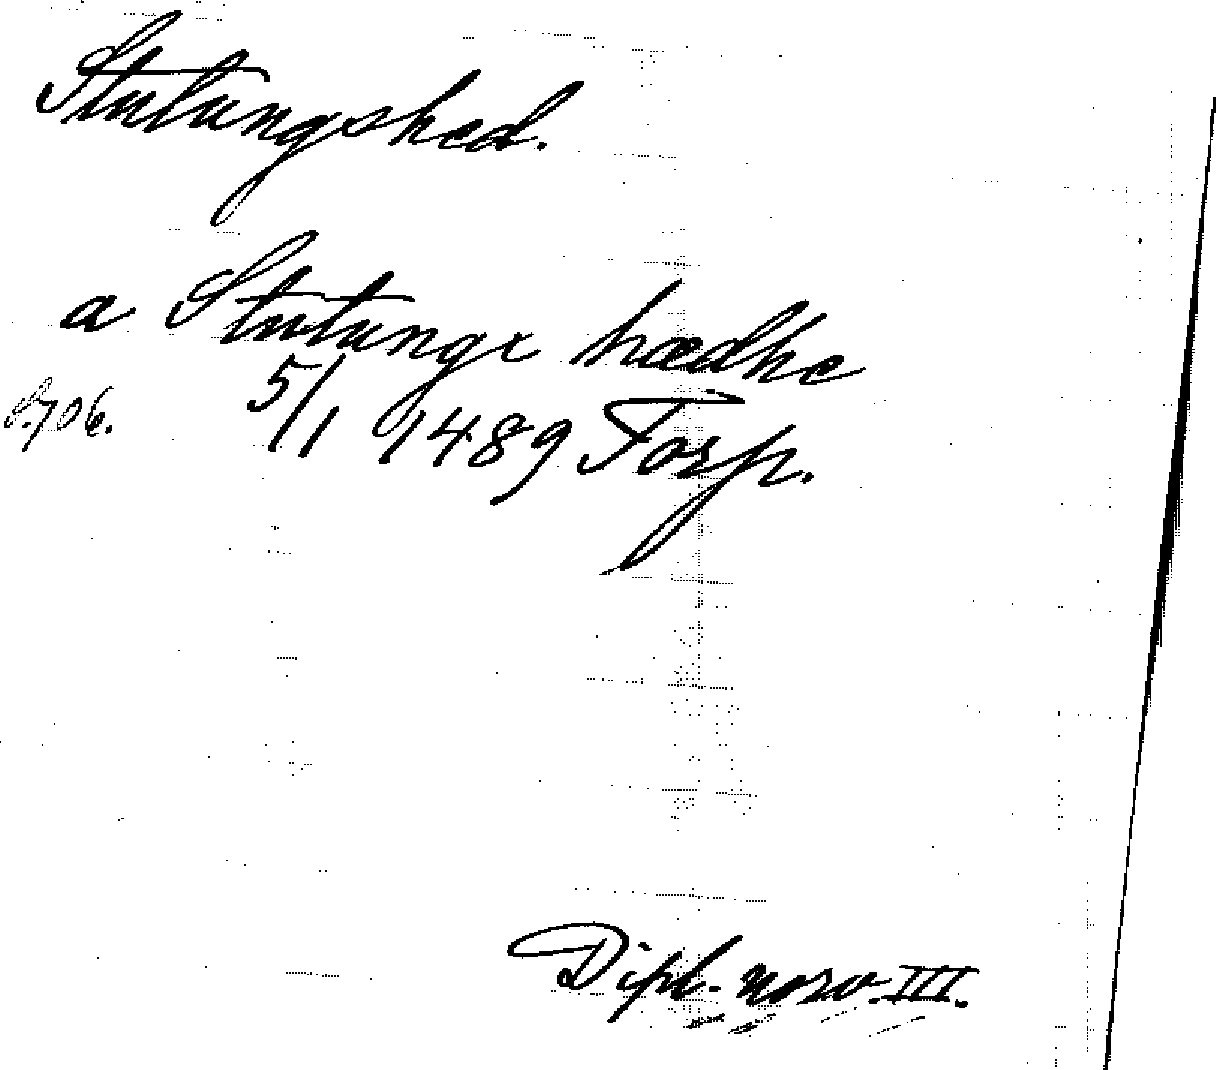 Stutungshed.
a Stutunge hædhe
S. 706. 5/1 1489 Torp.
Dipl. norv. III.